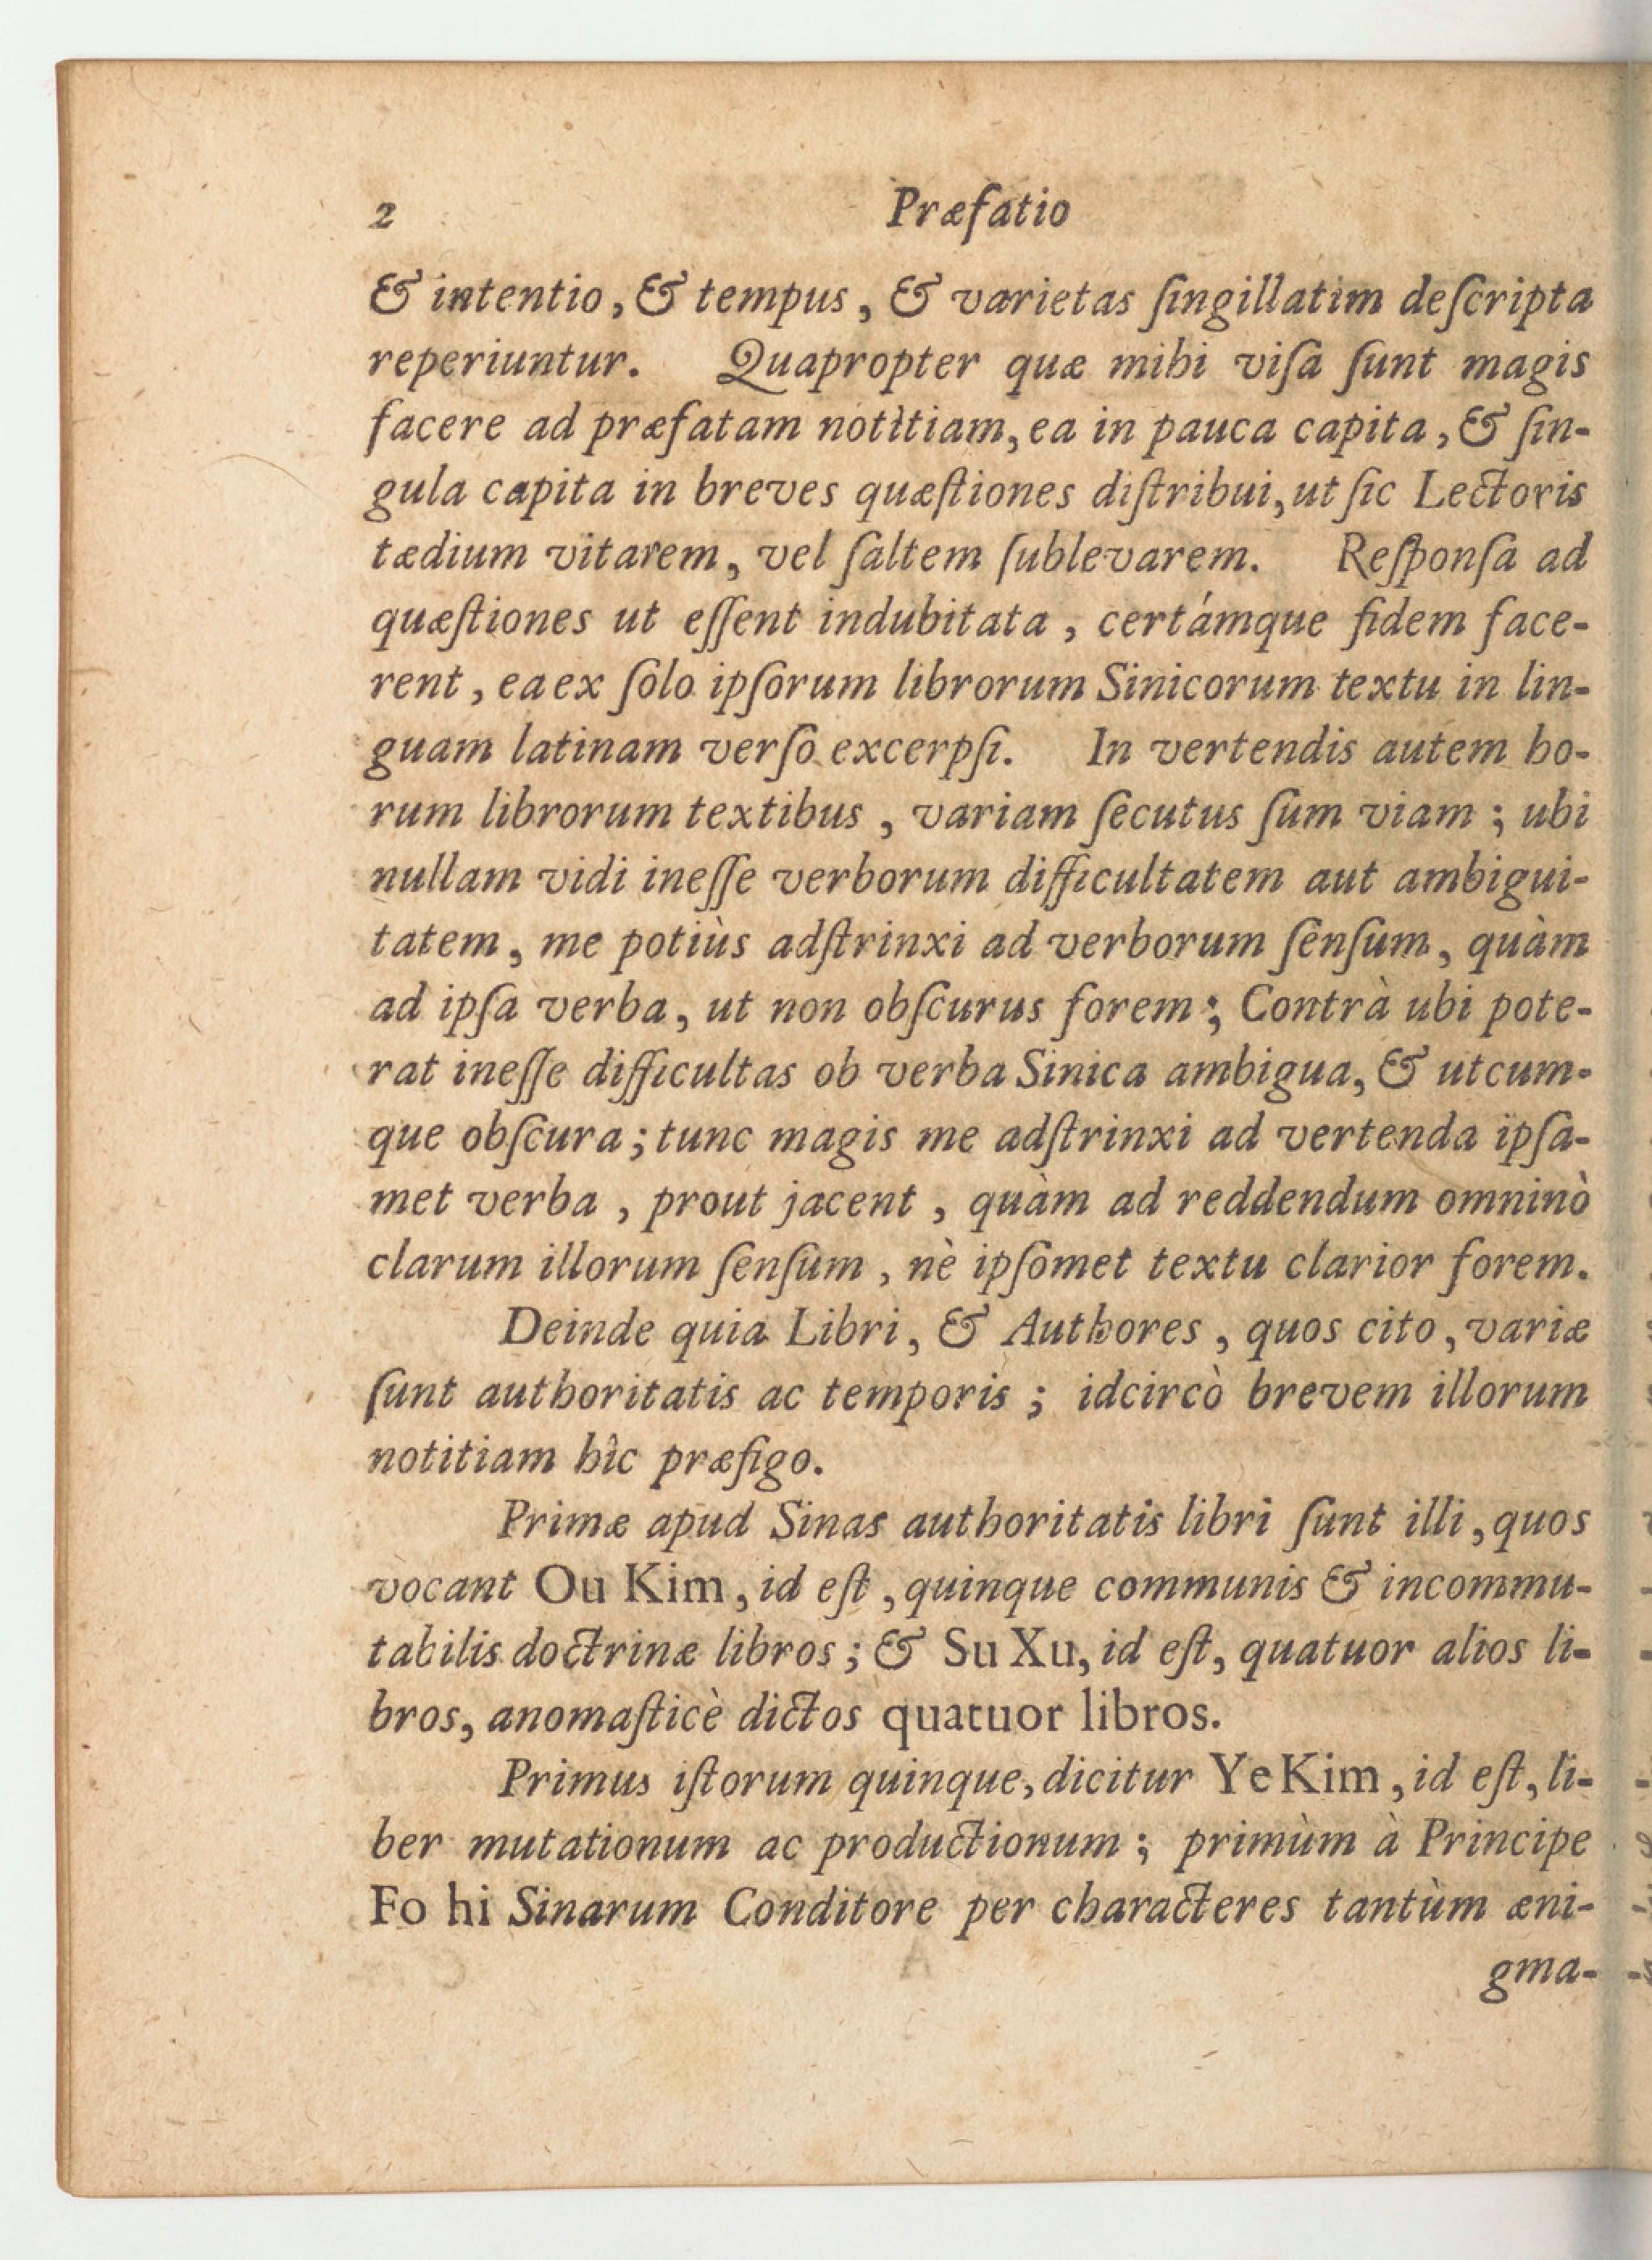 2 Præfatio
& intentio, & tempus, & varietas ſingillatim deſcripta
reperiuntur. Quapropter quæ mihi viſa ſunt magis
facere ad præfatam notitiam, ea in pauca capita, & ſin-
gula capita in breves quæſtiones diſtribui, ut ſic Lectoris
tædium vitarem, vel ſaltem ſublevarem. Reſponſa ad
quæſtiones ut eſſent indubitata, certámque fidem face-
rent, ea ex ſolo ipſorum librorum Sinicorum textu in lin-
guam latinam verſo excerpſi. In vertendis autem ho-
rum librorum textibus, variam ſecutus ſum viam; ubi
nullam vidi ineſſe verborum difficultatem aut ambigui-
tatem, me potiùs adſtrinxi ad verborum ſenſum, quàm
ad ipſa verba, ut non obſcurus forem; Contrà ubi pote-
rat ineſſe difficultas ob verba Sinica ambigua, & utcum-
que obſcura; tunc magis me adſtrinxi ad vertenda ipſa-
met verba, prout jacent, quàm ad reddendum omninò
clarum illorum ſenſum, nè ipſomet textu clarior forem.
Deinde quia Libri, & Authores, quos cito, variæ
ſunt authoritatis ac temporis; idcircò brevem illorum
notitiam hîc præfigo.
Primæ apud Sinas authoritatis libri ſunt illi, quos
vocant Ou Kim, id eſt, quinque communis & incommu-
tabilis doctrinæ libros; & Su Xu, id eſt, quatuor alios li-
bros, anomaſticè dictos quatuor libros.
Primus iſtorum quinque, dicitur Ye Kim, id eſt, li-
ber mutationum ac productionum; primùm à Principe
Fo hi Sinarum Conditore per characteres tantùm æni-
gma-